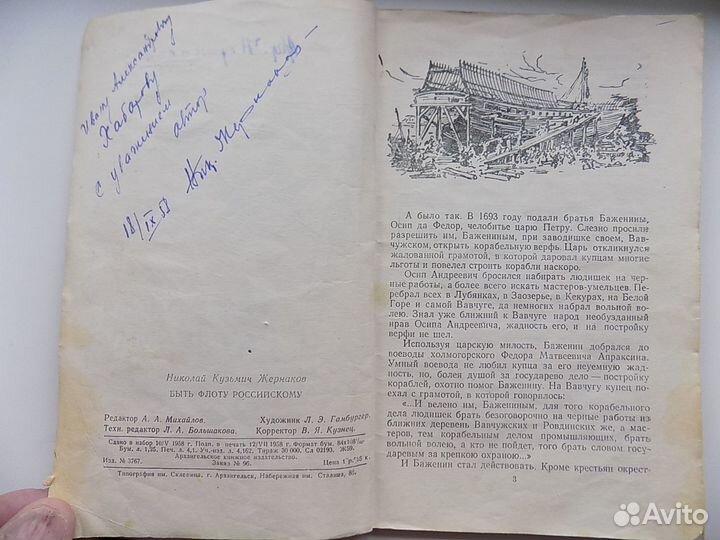 Ивану Александровичу
Хабарову
с уважением
автор
Ник. Жернаков
18/IX 58
Николай Кузьмич Жернаков
БЫТЬ ФЛОТУ РОССИЙСКОМУ
Редактор А. А. Михайлов. Художник Л. Э. Гамбургер.
Техн. редактор Л. А. Большакова. Корректор В. Я. Кузнец.
Сдано в набор 10/V 1958 г. Подп. в печать 12/VII 1958 г. Формат бум. 84х108 1/32
Бум. л. 1,35. Печ. л. 4,1. Уч.-изд. л. 4,162. Тираж 30 000. Сл 02253. Ж59.
Архангельское книжное издательство.
Изд. № 3767. Заказ № 96. Цена 1 р. 35 к.
Типография им. Склепина, г. Архангельск, Набережная им. Сталина, 86.
А было так. В 1693 году подали братья Баженины,
Осип да Федор, челобитье царю Петру. Слезно просили
разрешить им, Бажениным, при заводишке своем, Вав-
чужском, открыть корабельную верфь. Царь откликнулся
жалованной грамотой, в которой даровал купцам многие
льготы и повелел строить корабли наскоро.
Осип Андреевич бросился набирать людишек на чер-
ные работы, а более всего искать мастеров-умельцев. Пе-
ребрал всех в Лубянках, в Заозерье, в Кекурах, на Белой
Горе и самой Вавчуге, да немногих набрал вольной во-
лею. Знал уже ближний к Вавчуге народ необузданный
нрав Осипа Андреевича, жадность его, и на постройку
верфи не шел.
Используя царскую милость, Баженин добрался до
воеводы холмогорского Федора Матвеевича Апраксина.
Умный воевода не любил купца за его неуемную жад-
ность, но, болея душой за государево дело — постройку
кораблей, охотно помог Баженину. На Вавчугу купец по-
ехал с грамотой, в которой говорилось:
«...И велено им, Бажениным, для того корабельного
дела людишек брать безоговорочно на черные работы из
ближних деревень Вавчужских и Ровдинских же, а масте-
ров, тем корабельным делом промышляющих, брать
вольной волею, а кто не пойдет, того брать словом госу-
даревым за крепкою охраною...»
И Баженин стал действовать. Кроме крестьян окрест-
3
Avito